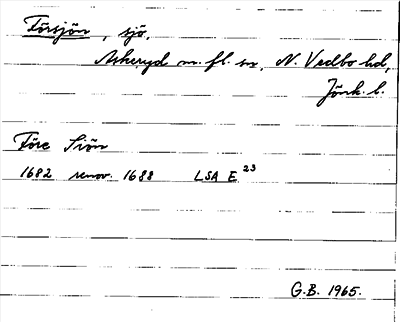 Försjön, sjö,
Askeryd m. fl. sn, N. Vedbo hd,
Jönk. l.
Före Siön
1682 renov. 1688 LSA E 23
G.B. 1965.